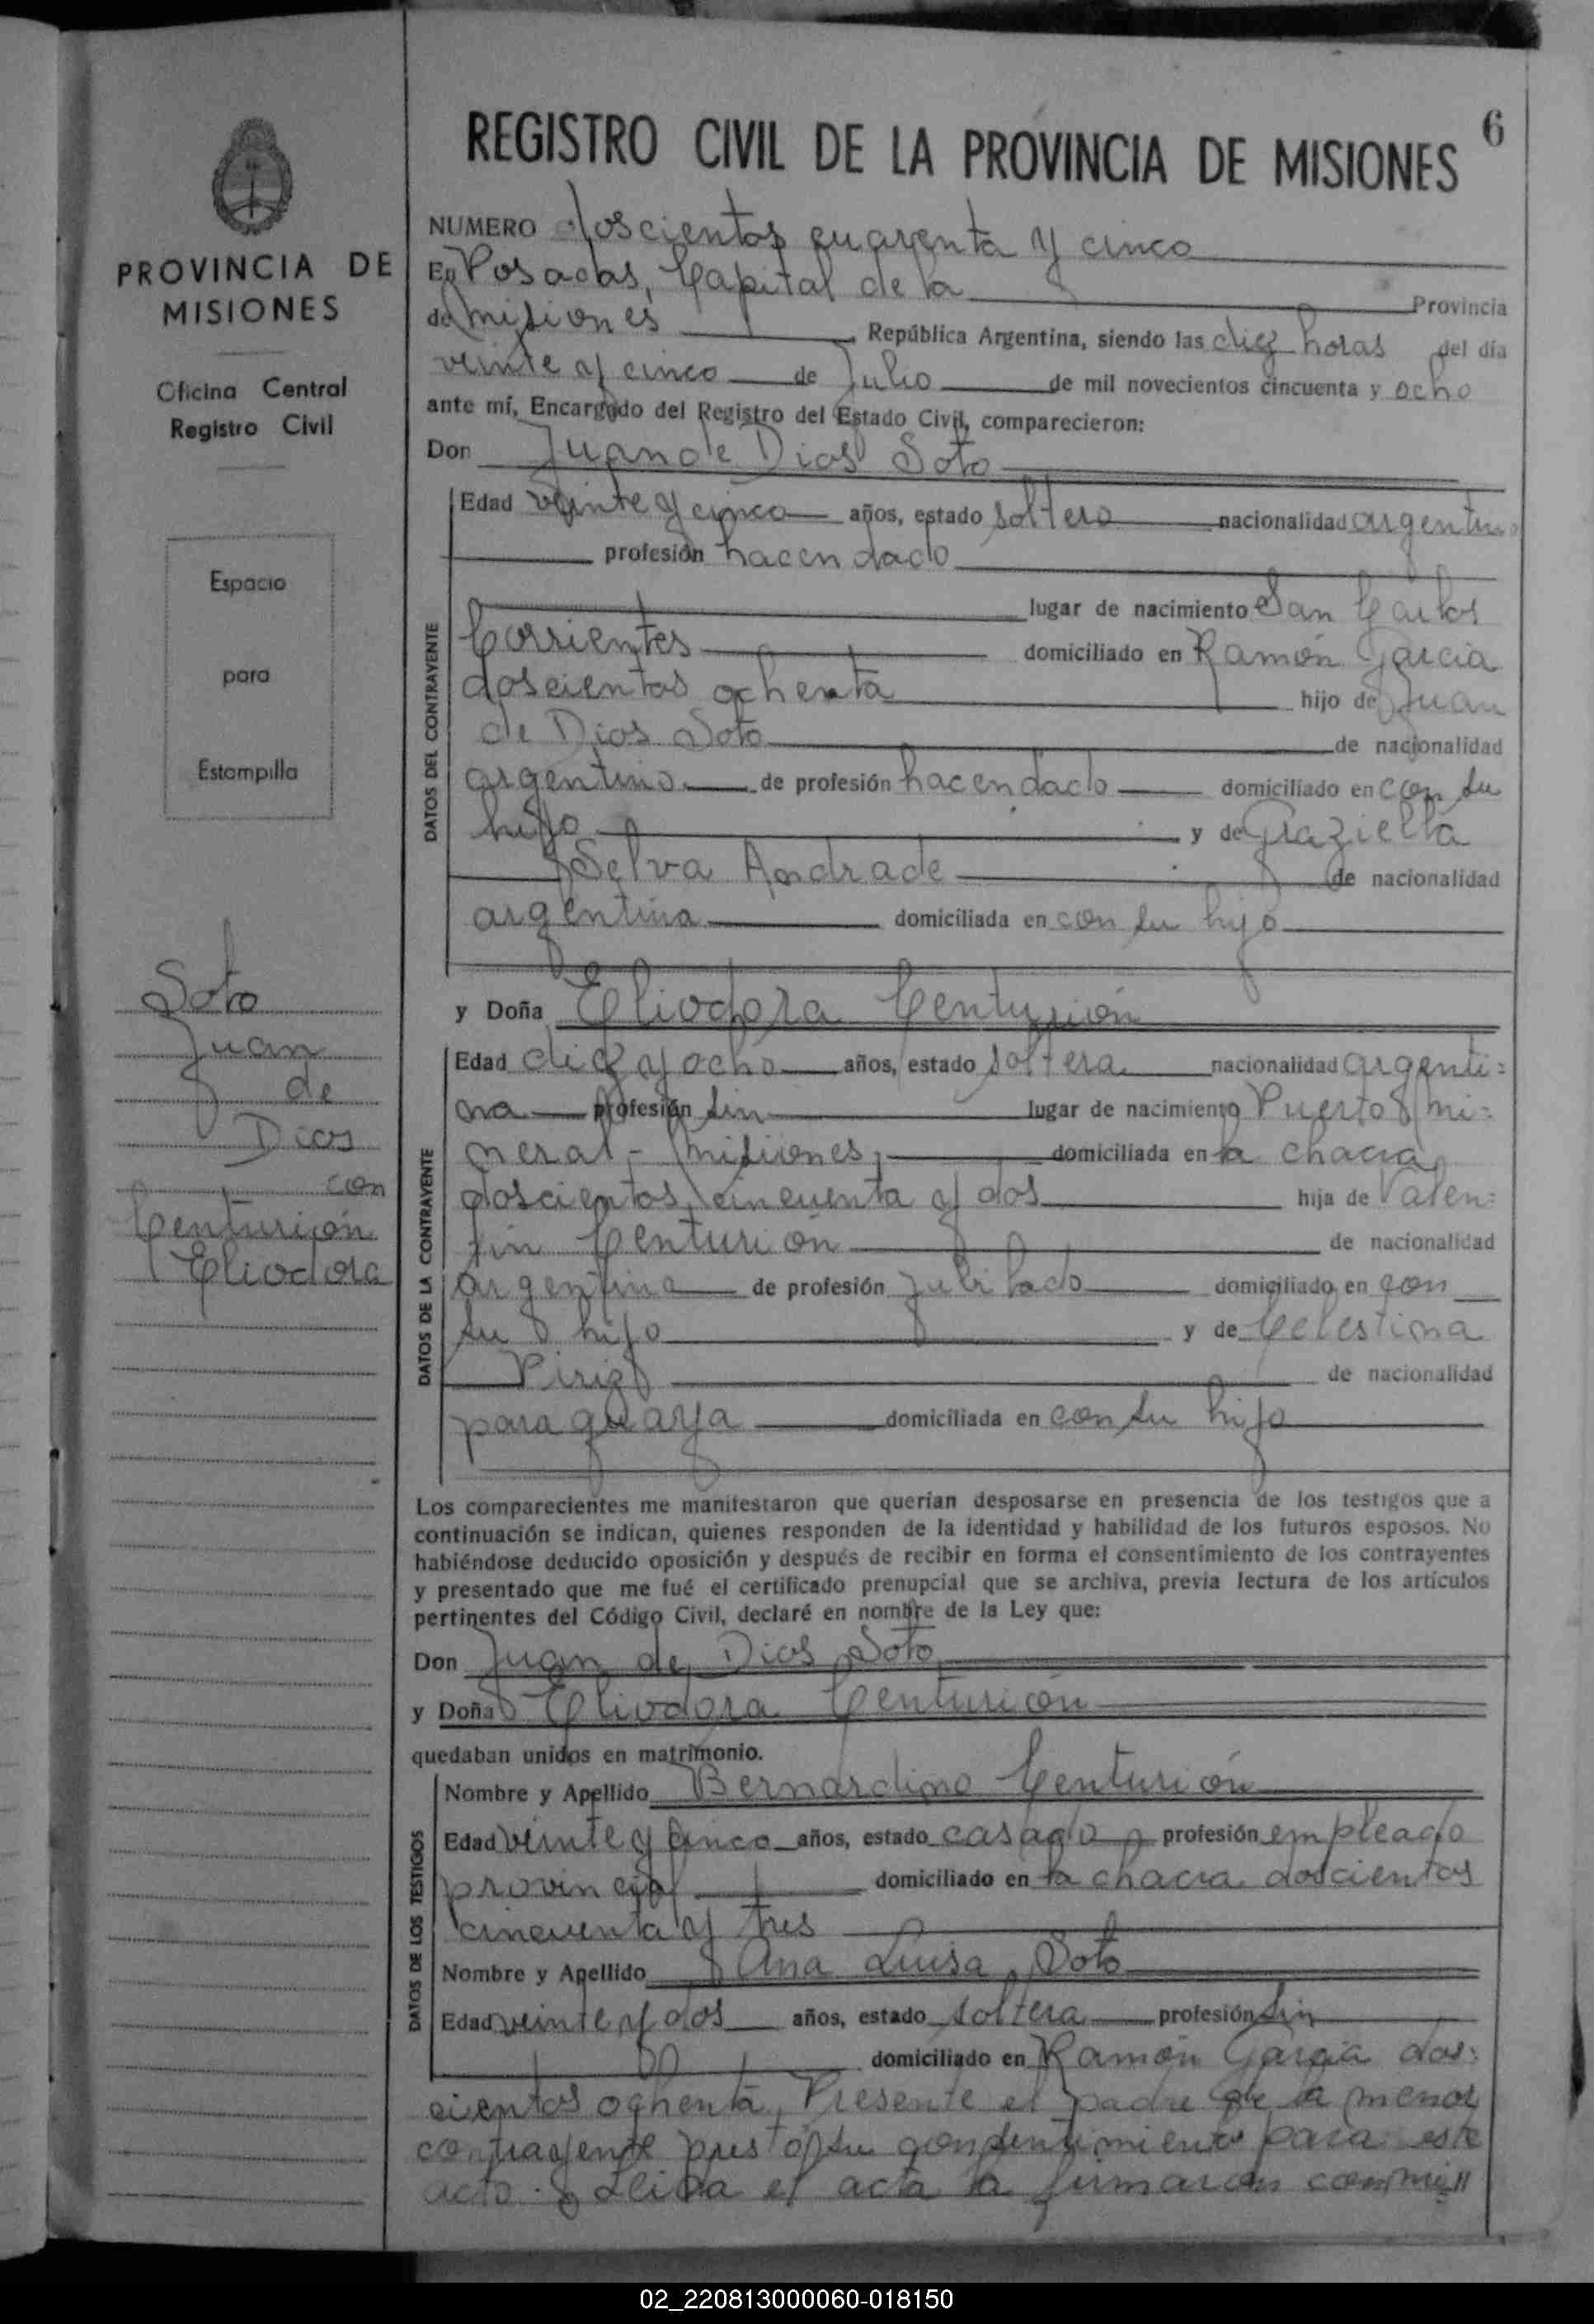 6
REGISTRO CIVIL DE LA PROVINCIA DE MISIONES
PROVINCIA DE
MISIONES
Oficina Central
Registro Civil
Espacio
para
Estampilla
Soto
Juan
de
Dios
con
Centurión
Eliodora
NUMERO doscientos cuarenta y cinco
En Posadas, Capital de la Provincia
de Misiones, República Argentina, siendo las diez horas del día
veinte y cinco de Julio de mil novecientos cincuenta y ocho
ante mí, Encargado del Registro del Estado Civil, comparecieron:
Don Juan de Dios Soto
DATOS DEL CONTRAYENTE
Edad veinte y cinco años, estado soltero nacionalidad argentino
profesión hacendado
lugar de nacimiento San Carlos
Corrientes domiciliado en Ramón García
doscientos ochenta hijo de Juan
de Dios Soto de nacionalidad
argentino de profesión hacendado domiciliado en con su
hijo y de Graziella
Selva Andrade de nacionalidad
argentina domiciliada en con su hijo
y Doña Eliodora Centurión
DATOS DE LA CONTRAYENTE
Edad diez y ocho años, estado soltera nacionalidad argenti=
na profesión sin lugar de nacimiento Puerto Mi=
neral - Misiones, domiciliada en la chacra
doscientos cincuenta y dos hija de Valen=
tin Centurión de nacionalidad
argentina de profesión jubilado domiciliado en con
su hijo y de Celestina
Piriz de nacionalidad
paraguaya domiciliada en con su hijo
Los comparecientes me manifestaron que querían desposarse en presencia de los testigos que a
continuación se indican, quienes responden de la identidad y habilidad de los futuros esposos. No
habiéndose deducido oposición y después de recibir en forma el consentimiento de los contrayentes
y presentado que me fué el certificado prenupcial que se archiva, previa lectura de los artículos
pertinentes del Código Civil, declaré en nombre de la Ley que:
Don Juan de Dios Soto
y Doña Eliodora Centurión
quedaban unidos en matrimonio.
DATOS DE LOS TESTIGOS
Nombre y Apellido Bernardino Centurión
Edad veinte y cinco años, estado casado profesión empleado
provincial domiciliado en la chacra doscientos
cincuenta y tres
Nombre y Apellido Ana Luisa Soto
Edad veinte y dos años, estado soltera profesión sin
domiciliado en Ramón García dos=
cientos ochenta, Presente el padre de la menor
contrayente prestó su consentimiento para este
acto. Leida el acta la firmaron conmi//
02_220813000060-018150